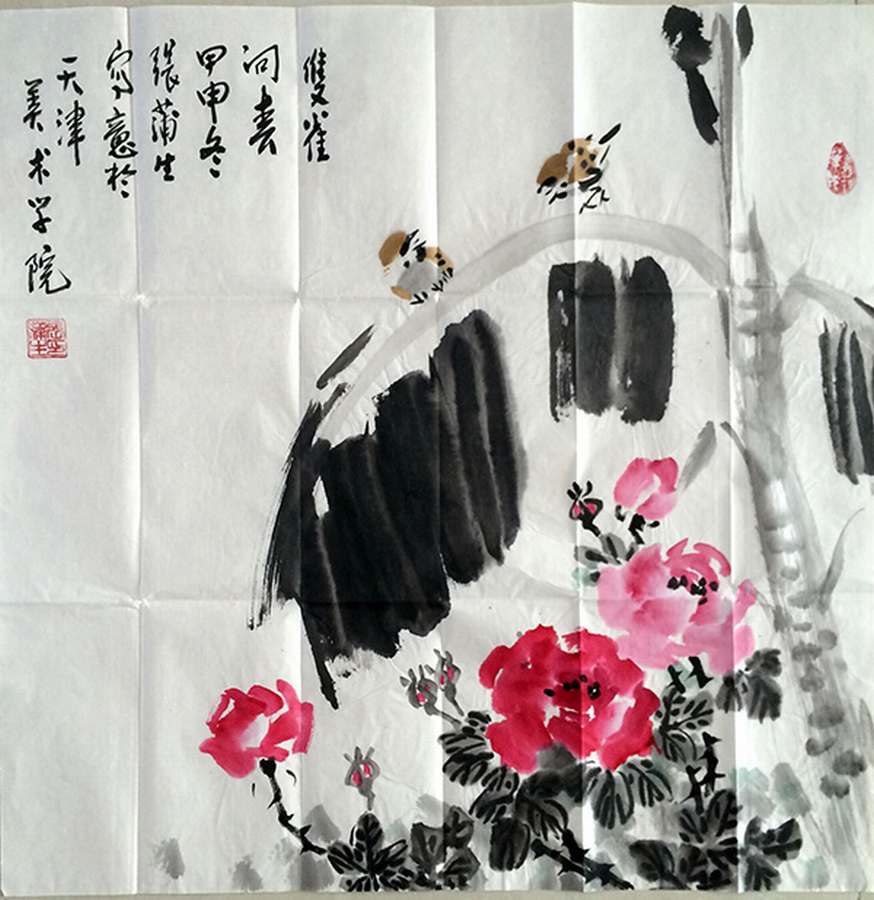 雙雀
问春
甲申冬
張蒲生
写意於
天津
美术学院